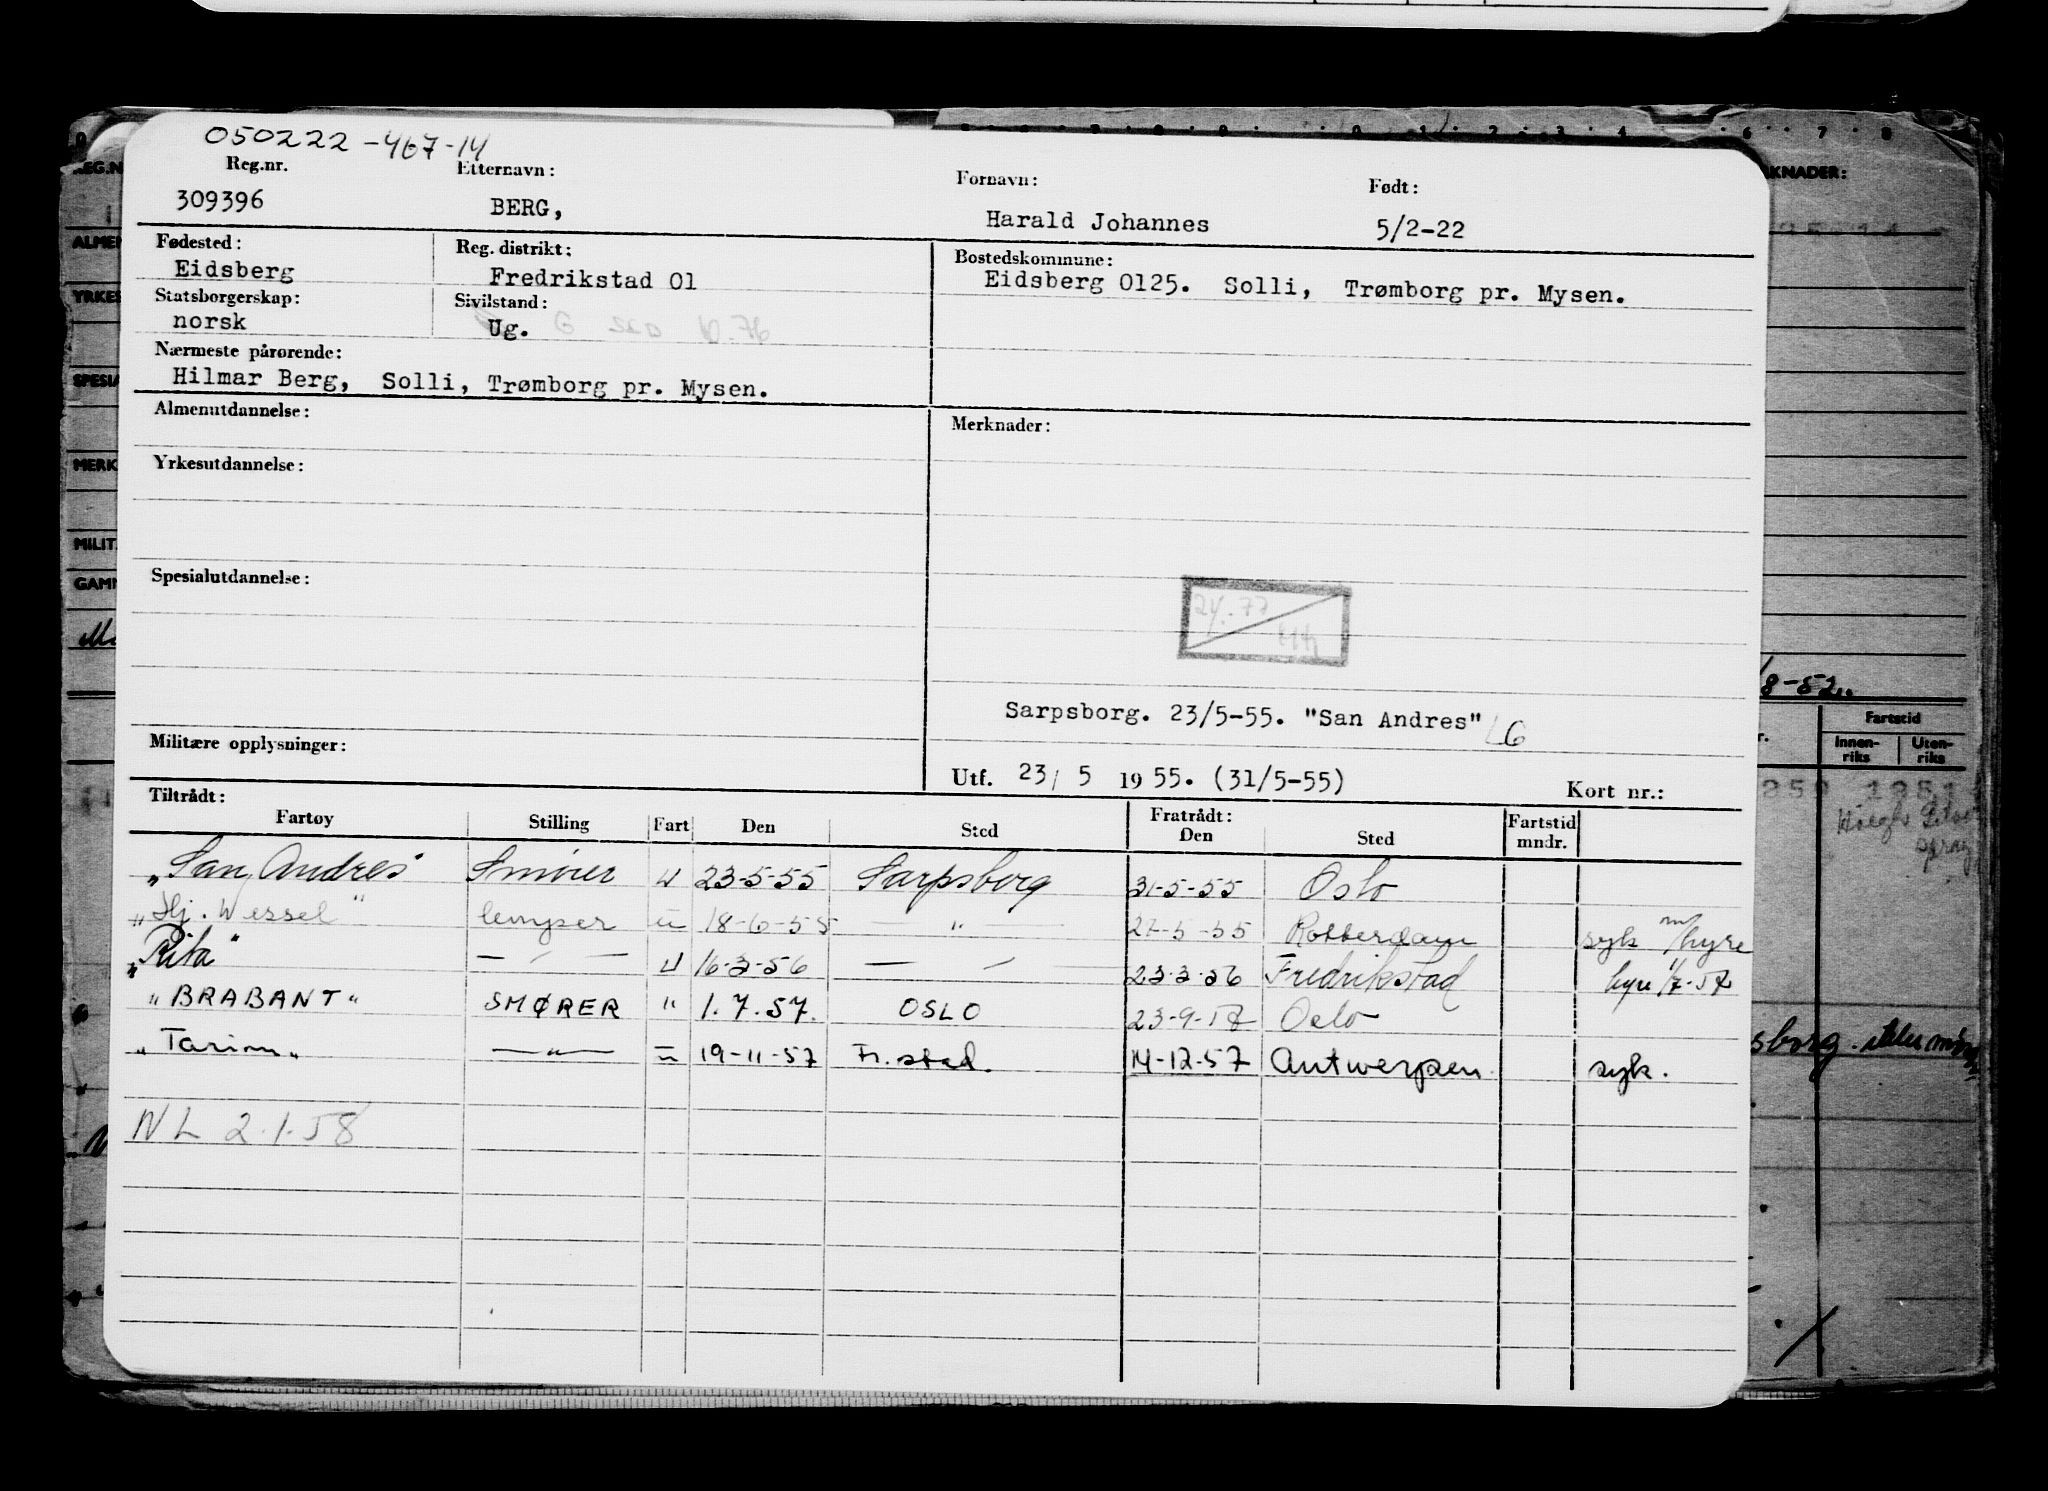 050222-467-14
Reg.nr. Etternavn: Fornavn: Født:
309396 BERG, Harald Johannes 5/2-22
Fødested: Reg. distrikt: Bostedskommune:
Eidsberg Fredrikstad 01 Eidsberg 0125. Solli, Trømborg pr. Mysen.
Statsborgerskap: Sivilstand:
norsk Ug.
Nærmeste pårørende:
Hilmar Berg, Solli, Trømborg pr. Mysen.
Almenutdannelse: Merknader:
Yrkesutdannelse:
Spesialutdannelse:
Sarpsborg. 23/5-55. "San Andres"
Militære opplysninger:
Utf. 23/ 5 1955. (31/5-55) Kort nr.:
Tiltrådt: Fratrådt:
Fartøy Stilling Fart Den Sted Den Sted Fartstid mndr.
"San Andres" Smører U 23-5-55 Sarpsborg 31-5-55 Oslo
"Hj. Wessel" lemper u 18-6-55 — " — 27-5-55 Rotterdam syk m/hyre
"Rita" — " — U 16-3-56 — " — 23-3-56 Fredrikstad hyre 1/7-57
"BRABANT" SMØRER " 1.7.57. OSLO 23-9-58 Oslo
"Tarim" — " — u 19-11-57 Fr.stad. 14-12-57 Antwerpen syk.
NL 2.1.58
REG.N
ALMEN
YRKES
SPESIA
MERK
MILIT
GAMM
KNADER:
/8-52.
Fartstid
Innen-riks Uten-riks
sborg.